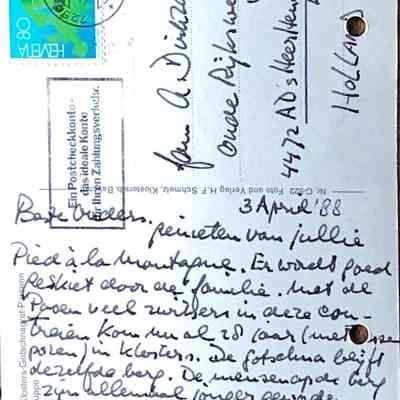 HELVETIA 80
7250
Ein Postcheckkonto-
das ideale Konto
für Ihren Zahlungsverkehr.
fam A. Dirkz
Oude Rijksw
4472 AD 's Heer Hen
HOLLAND
Nr. C-522 Foto und Verlag H. F. Schmelz, Klosters-B
3 April '88
Beste Ouders,
genieten van jullie
Pied à la montagne. Er wordt goed
geskiet door de familie. Met de
Pasen veel zwitsers in deze con-
treien. Kom nu al 28 jaar (met
pozen) in Klosters. De Gotschna blijft
dezelfde berg. De mensen op de berg
zijn allemaal jonger
Klosters-Gotschnagrat-Parsenn